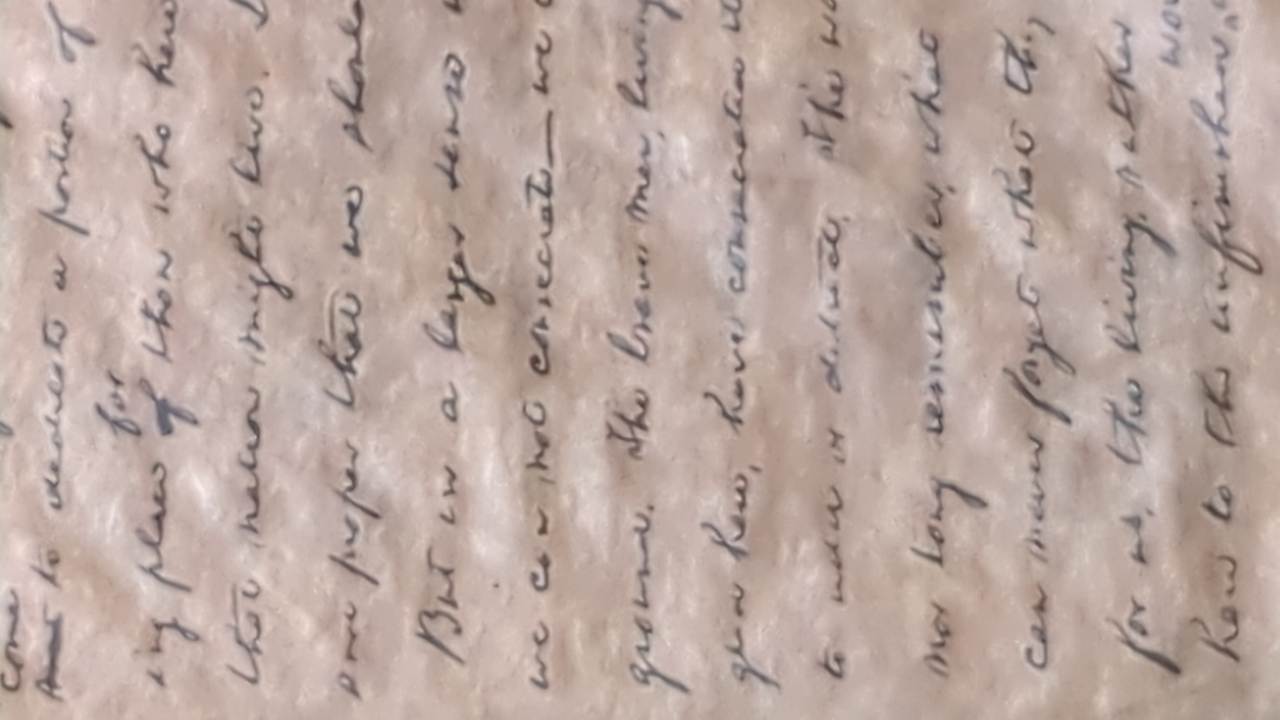 come
to dedicate a portion of
for
ing place of those who here
that nation might live.
proper that we
But in a larger sense
we can not consecrate — we
ground. The brave men, living
here, have consecrated
to detract. The
nor long remember, what
can never forget what they
for us, the living, rather
here to the unfinished